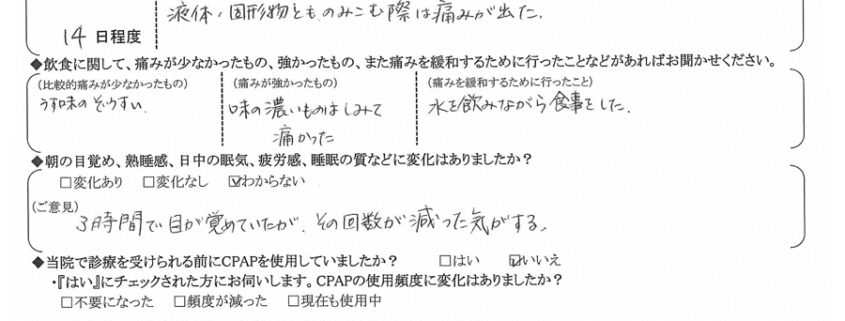 液体・固形物とものみこむ際は痛みが出た.
14 日程度
◆飲食に関して、痛みが少なかったもの、強かったもの、また痛みを緩和するために行ったことなどがあればお聞かせください。
(比較的痛みが少なかったもの) (痛みが強かったもの) (痛みを緩和するために行ったこと)
うす味のぞうすい. 味の濃いものはしみて 水を飲みながら食事をした.
痛かった
◆朝の目覚め、熟睡感、日中の眠気、疲労感、睡眠の質などに変化はありましたか?
□変化あり □変化なし ☑わからない
(ご意見)
3時間で目が覚めていたが、その回数が減った気がする.
◆当院で診療を受けられる前にCPAPを使用していましたか? □はい ☑いいえ
・『はい』にチェックされた方にお伺いします。CPAPの使用頻度に変化はありましたか?
□不要になった □頻度が減った □現在も使用中